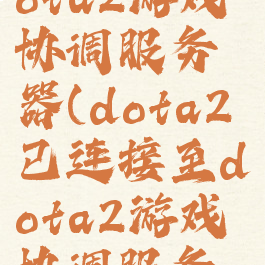 ota2游戏
协调服务
器(dota2
已连接至d
ota2游戏
协调服务